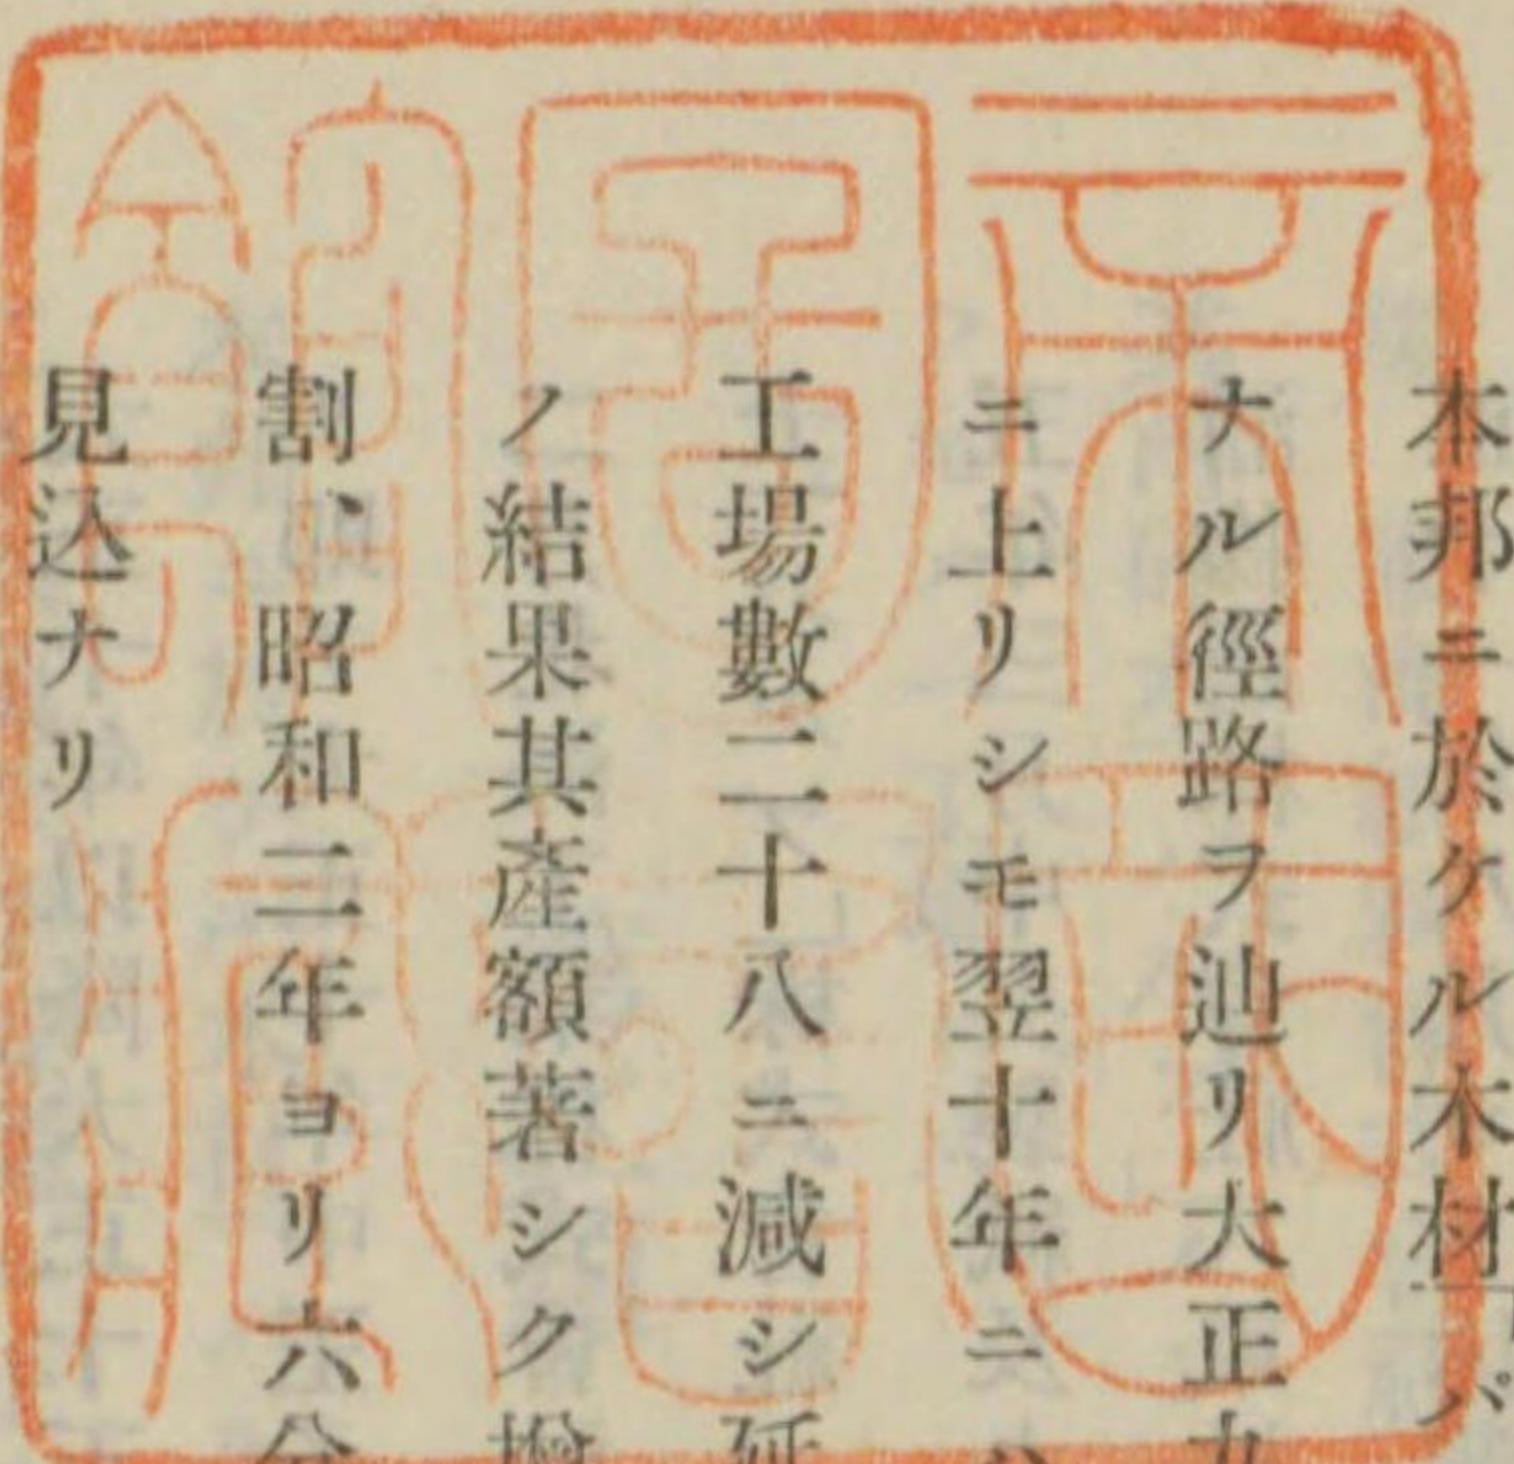 本邦ニ於ケル木材「パ
ナル徑路ヲ辿リ大正九
ニ上リシモ翌十年ニハ
工場數二十八ニ減シ延
ノ結果其產額著シク增
割、昭和二年ヨリ六分
見込ナリ
帝國
圖書
館藏